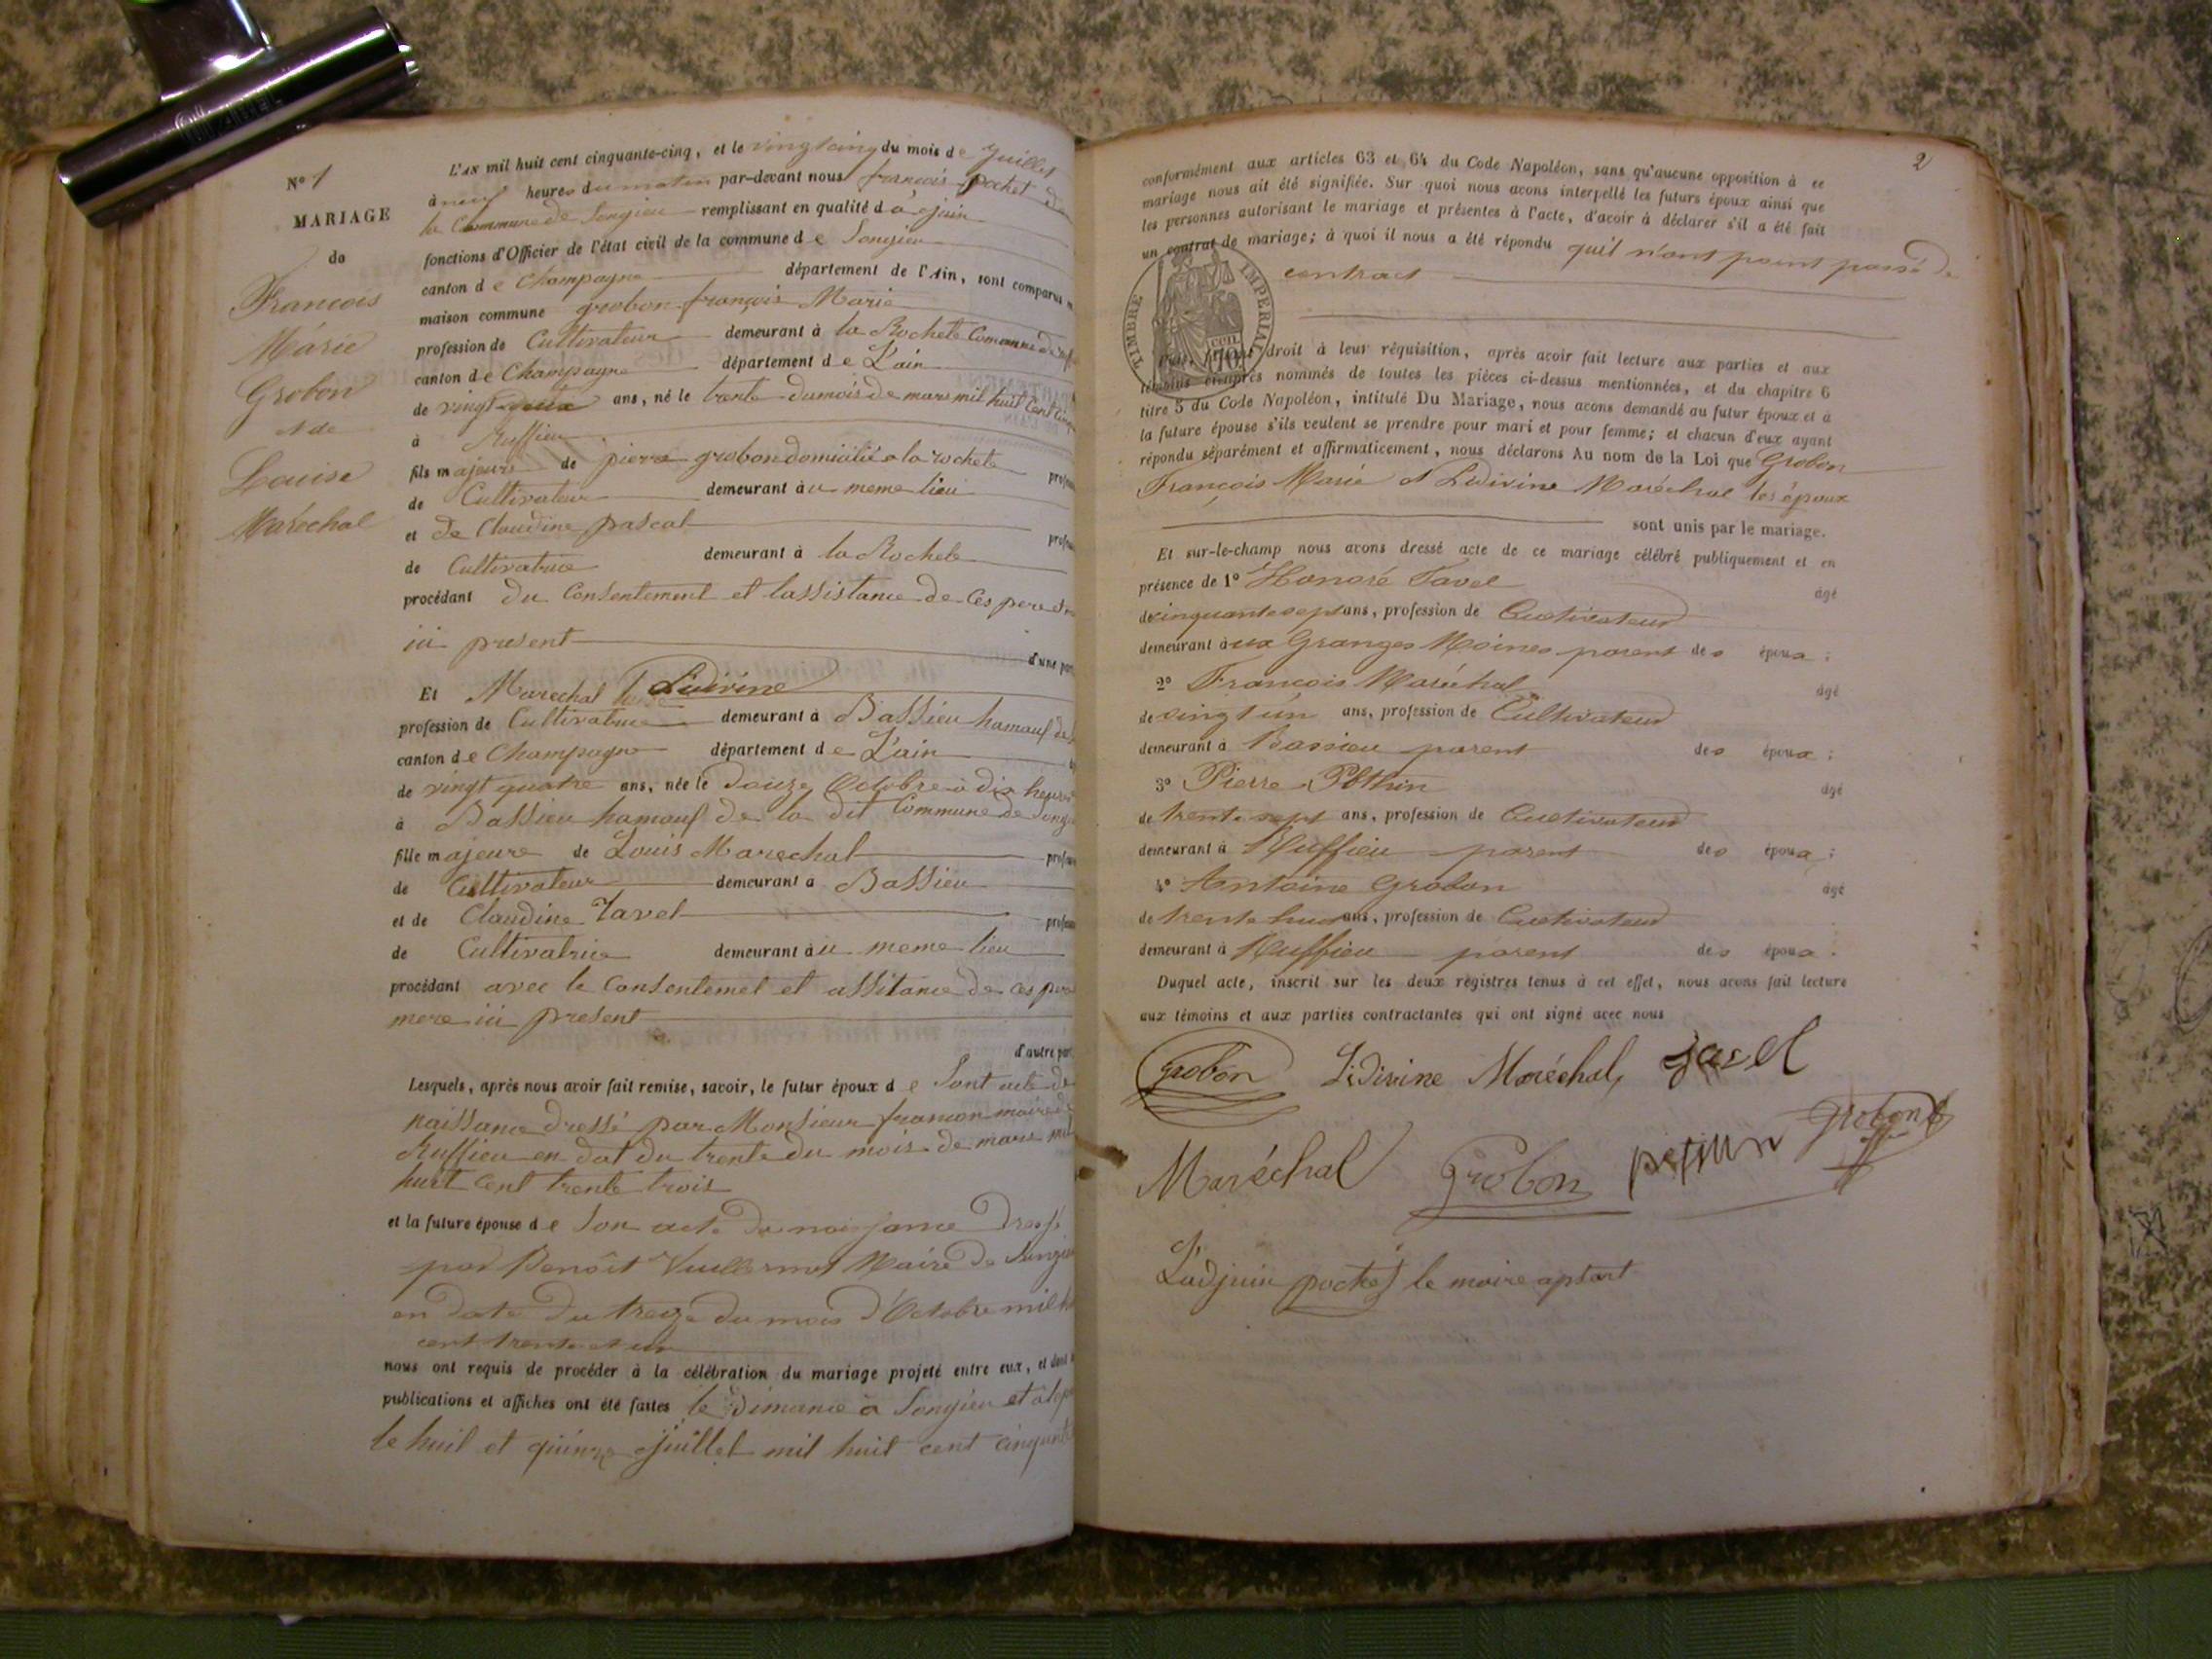 N° 1
MARIAGE
de
François
Marie
Grobon
et de
Louise
Maréchal
L'AN mil huit cent cinquante-cinq, et le vingt cinq du mois de Juillet
à neuf heures du matin par-devant nous françois pochet
la Commune de Songieu remplissant en qualité d'ajoin
fonctions d'Officier de l'état civil de la commune de Songieu
canton de Champagne département de l'Ain, sont comparus
maison commune grobon françois Marie
profession de Cultivateur demeurant à la Rochete Commune de
canton de Champagne département de L'ain
de vingt deux ans, né le trente du mois de mars mil huit Cent
à Ruffieu
fils majeure de pierre grobon domicilié a la rochete
de Cultivateur demeurant àu meme lieu
et de Claudine pascal
de Cultivatrice demeurant à la Rochete
procédant du Consentement et lassistance de Ces pere et
ici present
d'une part
Et Marechal Ludivine
profession de Cultivatrice demeurant à Bassieu hamauf de
canton de Champagne département de L'ain
de vingt quatre ans, née le Douze Octobre à dix heures
à Bassieu hamauf de la dit Commune de Songieu
fille majeure de Louis Marechal
de Cultivateur demeurant a Bassieu
et de Claudine Tavel
de Cultivatrice demeurant àu meme lieu
procédant avec le Consentemet et assitance de ces pere
mere ici present
d'autre part
Lesquels, après nous avoir fait remise, savoir, le futur époux de Sont acte de
naissance dressé par Monsieur françon maire de
Ruffieu en dat du trente du mois de mars mil
huit Cent trente trois
et la future épouse de Son acte de naissance Dressé
par Benoît Vuillermot Maire de Songieu
en date du treize du mois d'Octobre mil
cent trente et un
nous ont requis de procéder à la célébration du mariage projeté entre eux, et dont
publications et affiches ont été faites le Dimance à Songieu et
le huit et quinze Juillet mil huit cent cinquante
2
conformément aux articles 63 et 64 du Code Napoléon, sans qu'aucune opposition à ce
mariage nous ait été signifiée. Sur quoi nous avons interpellé les futurs époux ainsi que
les personnes autorisant le mariage et présentes à l'acte, d'avoir à déclarer s'il a été fait
un contrat de mariage; à quoi il nous a été répondu quil n'ont point passé de
contract
TIMBRE IMPERIAL
70 cen
droit à leur réquisition, après avoir fait lecture aux parties et aux
témoins ci-après nommés de toutes les pièces ci-dessus mentionnées, et du chapitre 6
titre 5 du Code Napoléon, intitulé Du Mariage, nous avons demandé au futur époux et à
la future épouse s'ils veulent se prendre pour mari et pour femme; et chacun d'eux ayant
répondu séparément et affirmativement, nous déclarons Au nom de la Loi que Grobon
François Marie et Ludivine Maréchal les époux
sont unis par le mariage.
Et sur-le-champ nous avons dressé acte de ce mariage célébré publiquement et en
présence de 1° Honoré Tavel âgé
de cinquante sept ans, profession de Cultivateur
demeurant àux Granges Moines parent des époux;
2° François Maréchal âgé
de vingt un ans, profession de Cultivateur
demeurant à Bassieu parent des époux;
3° Pierre Pothin âgé
de trente sept ans, profession de Cultivateur
demeurant à Ruffieu parent des époux;
4° Antoine Grobon âgé
de trente huit ans, profession de Cultivateur
demeurant à Ruffieu parent des époux.
Duquel acte, inscrit sur les deux registres tenus à cet effet, nous avons fait lecture
aux témoins et aux parties contractantes qui ont signé avec nous
Grobon Lidivine Maréchal Tavel
Maréchal Grobon Grobon
L'adjuin pochet le maire